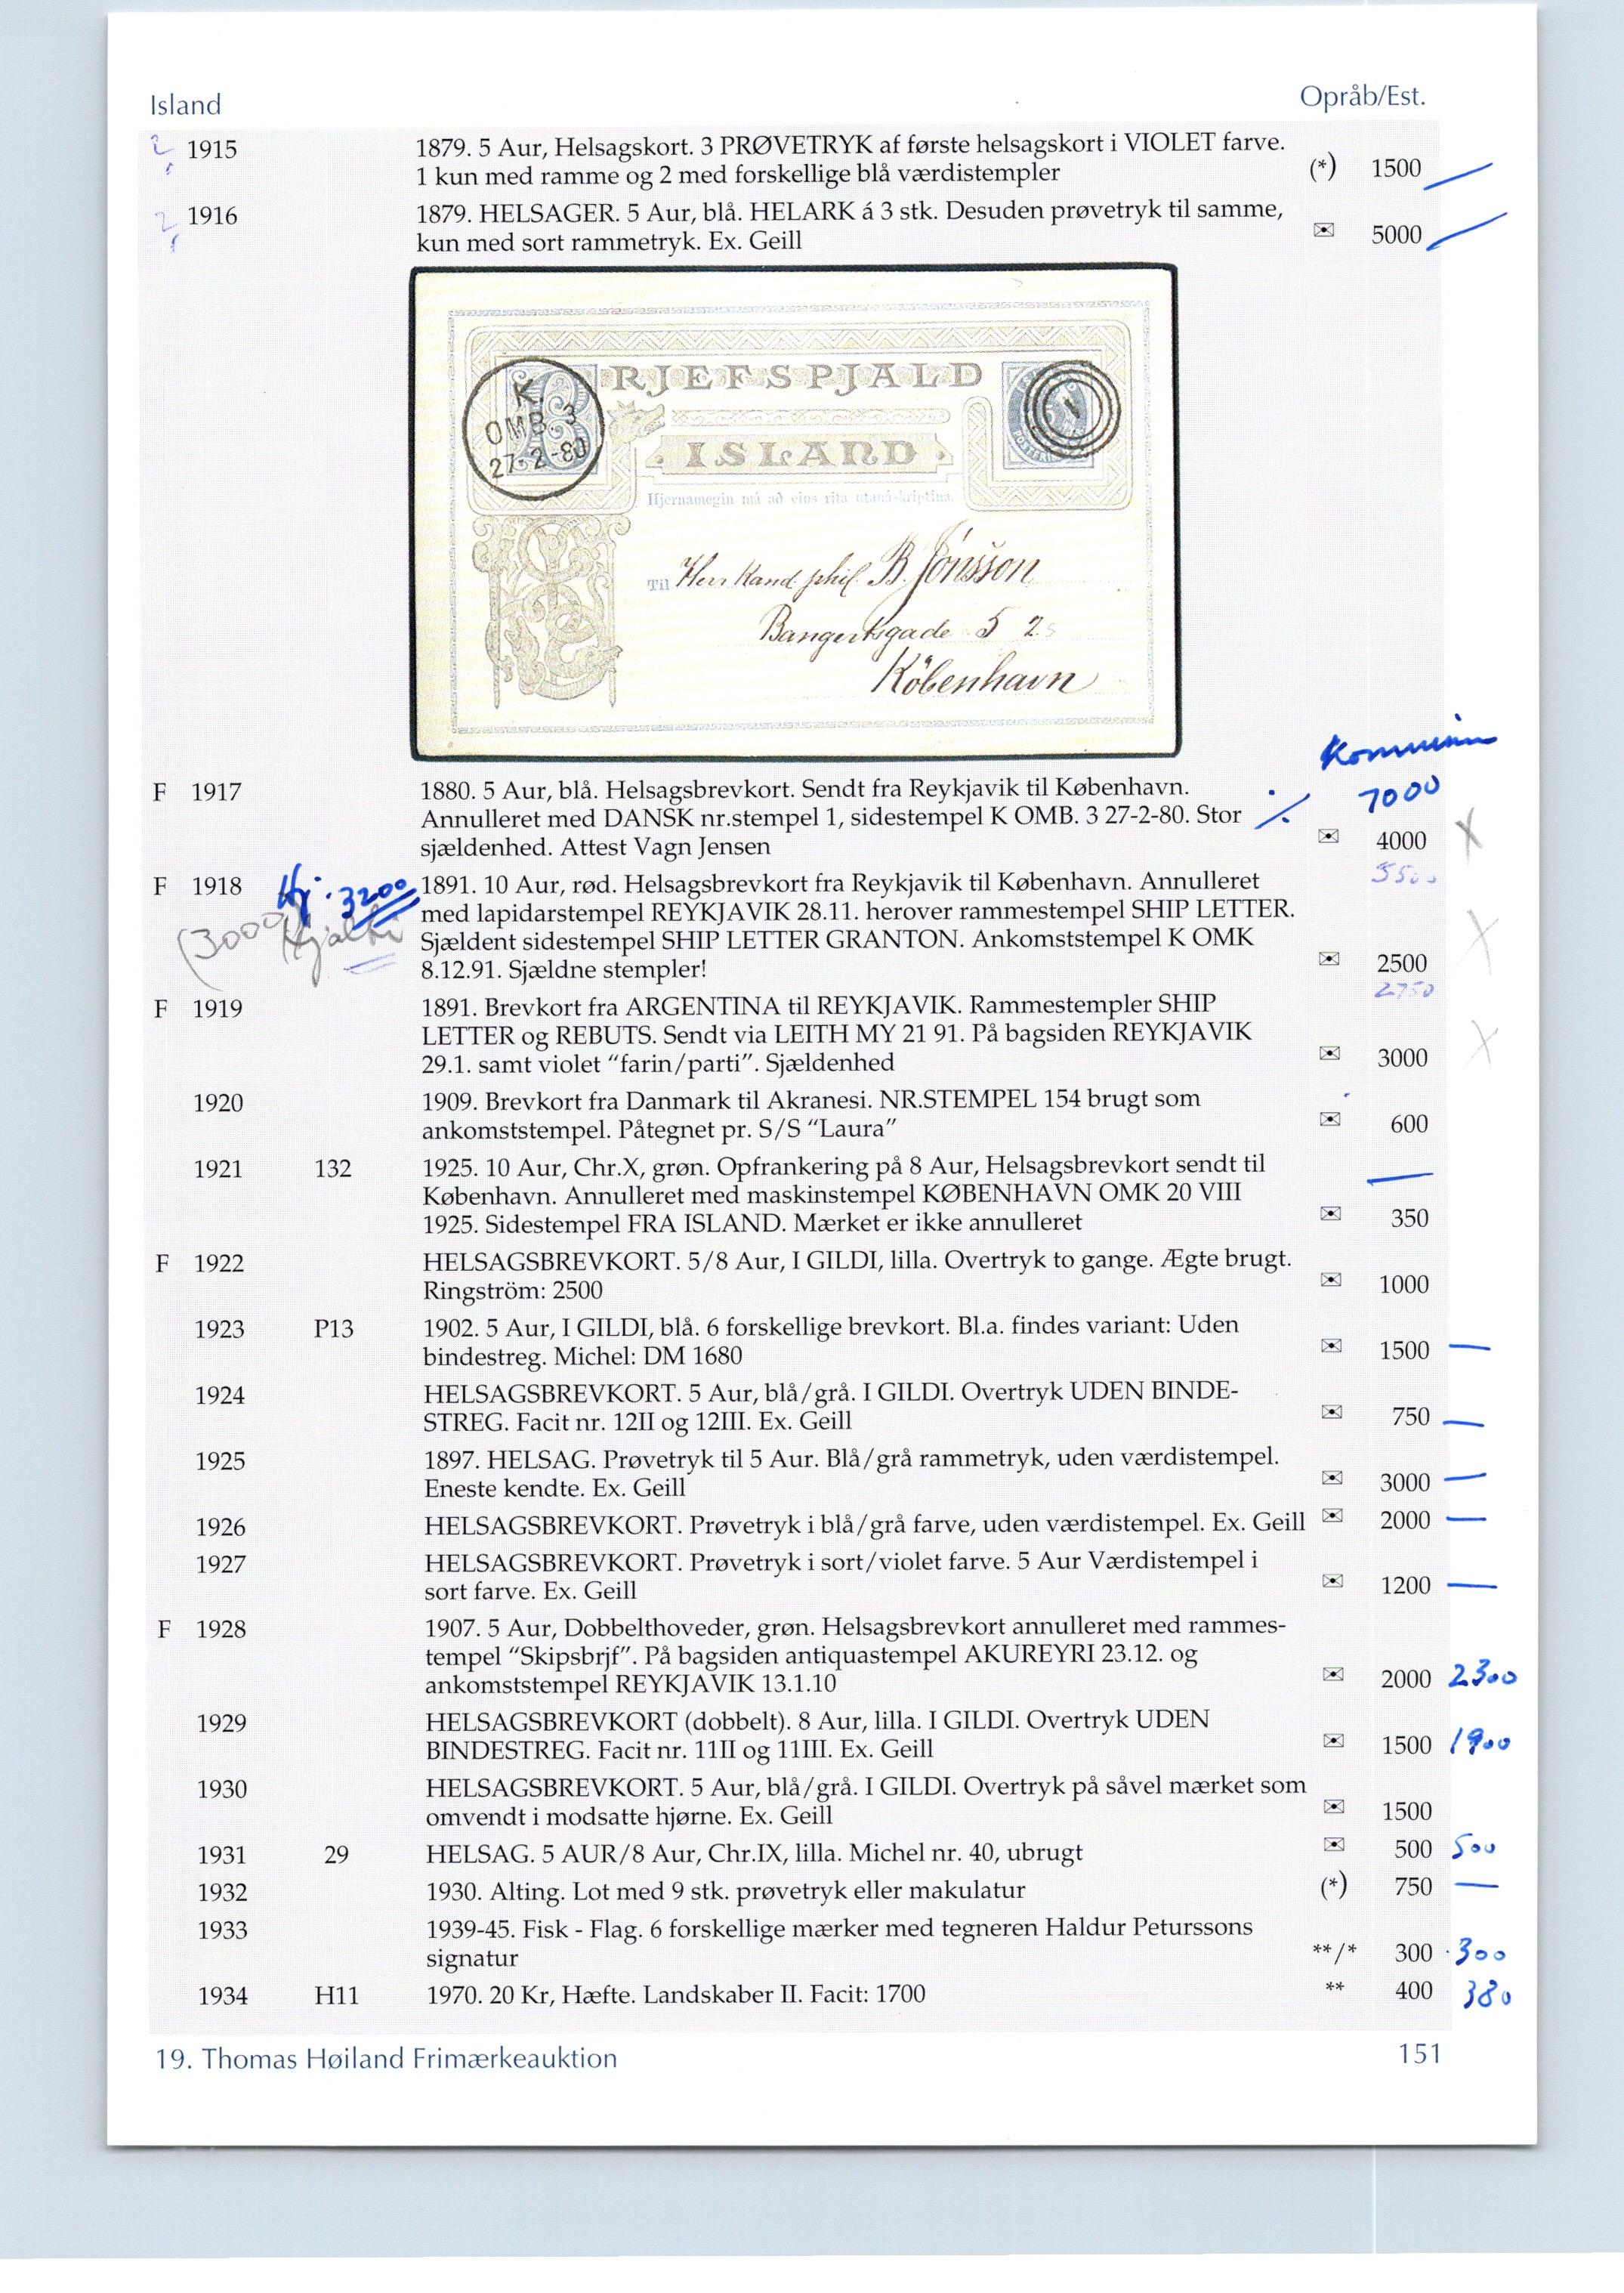 Island Opråb/Est.
1915 1879. 5 Aur, Helsagskort. 3 PRØVETRYK af første helsagskort i VIOLET farve.
1 kun med ramme og 2 med forskellige blå værdistempler (*) 1500
1916 1879. HELSAGER. 5 Aur, blå. HELARK á 3 stk. Desuden prøvetryk til samme,
kun med sort rammetryk. Ex. Geill 5000
BRJEFSPJALD
K. OMB. 3
27-2-80
1
ISLAND
Hjernamegin má að eins rita utaná-skriptina.
Til Herr Kand phil B. Jónsson
Bangertsgade 5 2 s
Köbenhavn
7000
F 1917 1880. 5 Aur, blå. Helsagsbrevkort. Sendt fra Reykjavik til København.
Annulleret med DANSK nr.stempel 1, sidestempel K OMB. 3 27-2-80. Stor
sjældenhed. Attest Vagn Jensen 4000 X
5500
F 1918 Hj. 3200 1891. 10 Aur, rød. Helsagsbrevkort fra Reykjavik til København. Annulleret
(3000 Hjalti med lapidarstempel REYKJAVIK 28.11. herover rammestempel SHIP LETTER.
Sjældent sidestempel SHIP LETTER GRANTON. Ankomststempel K OMK
8.12.91. Sjældne stempler! 2500 X
2750
F 1919 1891. Brevkort fra ARGENTINA til REYKJAVIK. Rammestempler SHIP
LETTER og REBUTS. Sendt via LEITH MY 21 91. På bagsiden REYKJAVIK
29.1. samt violet “farin/parti”. Sjældenhed 3000 X
1920 1909. Brevkort fra Danmark til Akranesi. NR.STEMPEL 154 brugt som
ankomststempel. Påtegnet pr. S/S “Laura” 600
1921 132 1925. 10 Aur, Chr.X, grøn. Opfrankering på 8 Aur, Helsagsbrevkort sendt til
København. Annulleret med maskinstempel KØBENHAVN OMK 20 VIII
1925. Sidestempel FRA ISLAND. Mærket er ikke annulleret 350
F 1922 HELSAGSBREVKORT. 5/8 Aur, I GILDI, lilla. Overtryk to gange. Ægte brugt.
Ringström: 2500 1000
1923 P13 1902. 5 Aur, I GILDI, blå. 6 forskellige brevkort. Bl.a. findes variant: Uden
bindestreg. Michel: DM 1680 1500
1924 HELSAGSBREVKORT. 5 Aur, blå/grå. I GILDI. Overtryk UDEN BINDE-
STREG. Facit nr. 12II og 12III. Ex. Geill 750
1925 1897. HELSAG. Prøvetryk til 5 Aur. Blå/grå rammetryk, uden værdistempel.
Eneste kendte. Ex. Geill 3000
1926 HELSAGSBREVKORT. Prøvetryk i blå/grå farve, uden værdistempel. Ex. Geill 2000
1927 HELSAGSBREVKORT. Prøvetryk i sort/violet farve. 5 Aur Værdistempel i
sort farve. Ex. Geill 1200
F 1928 1907. 5 Aur, Dobbelthoveder, grøn. Helsagsbrevkort annulleret med rammes-
tempel “Skipsbrjf”. På bagsiden antiquastempel AKUREYRI 23.12. og
ankomststempel REYKJAVIK 13.1.10 2000 2300
1929 HELSAGSBREVKORT (dobbelt). 8 Aur, lilla. I GILDI. Overtryk UDEN
BINDESTREG. Facit nr. 11II og 11III. Ex. Geill 1500 1900
1930 HELSAGSBREVKORT. 5 Aur, blå/grå. I GILDI. Overtryk på såvel mærket som
omvendt i modsatte hjørne. Ex. Geill 1500
1931 29 HELSAG. 5 AUR/8 Aur, Chr.IX, lilla. Michel nr. 40, ubrugt 500 500
1932 1930. Alting. Lot med 9 stk. prøvetryk eller makulatur (*) 750
1933 1939-45. Fisk - Flag. 6 forskellige mærker med tegneren Haldur Peturssons
signatur **/* 300 300
1934 H11 1970. 20 Kr, Hæfte. Landskaber II. Facit: 1700 ** 400 380
19. Thomas Høiland Frimærkeauktion 151